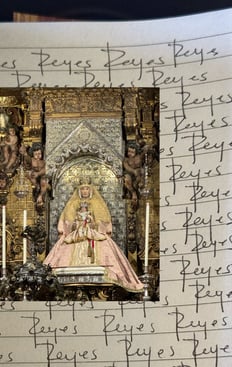 es Reyes Reyes Reyes
Reyes Reyes Reyes
Reyes
Reyes
es Reyes
Reyes
Reyes
Reyes
es Reyes
Reyes
Reyes Reyes
Reyes Reyes Reyes
Reyes Reyes Reyes